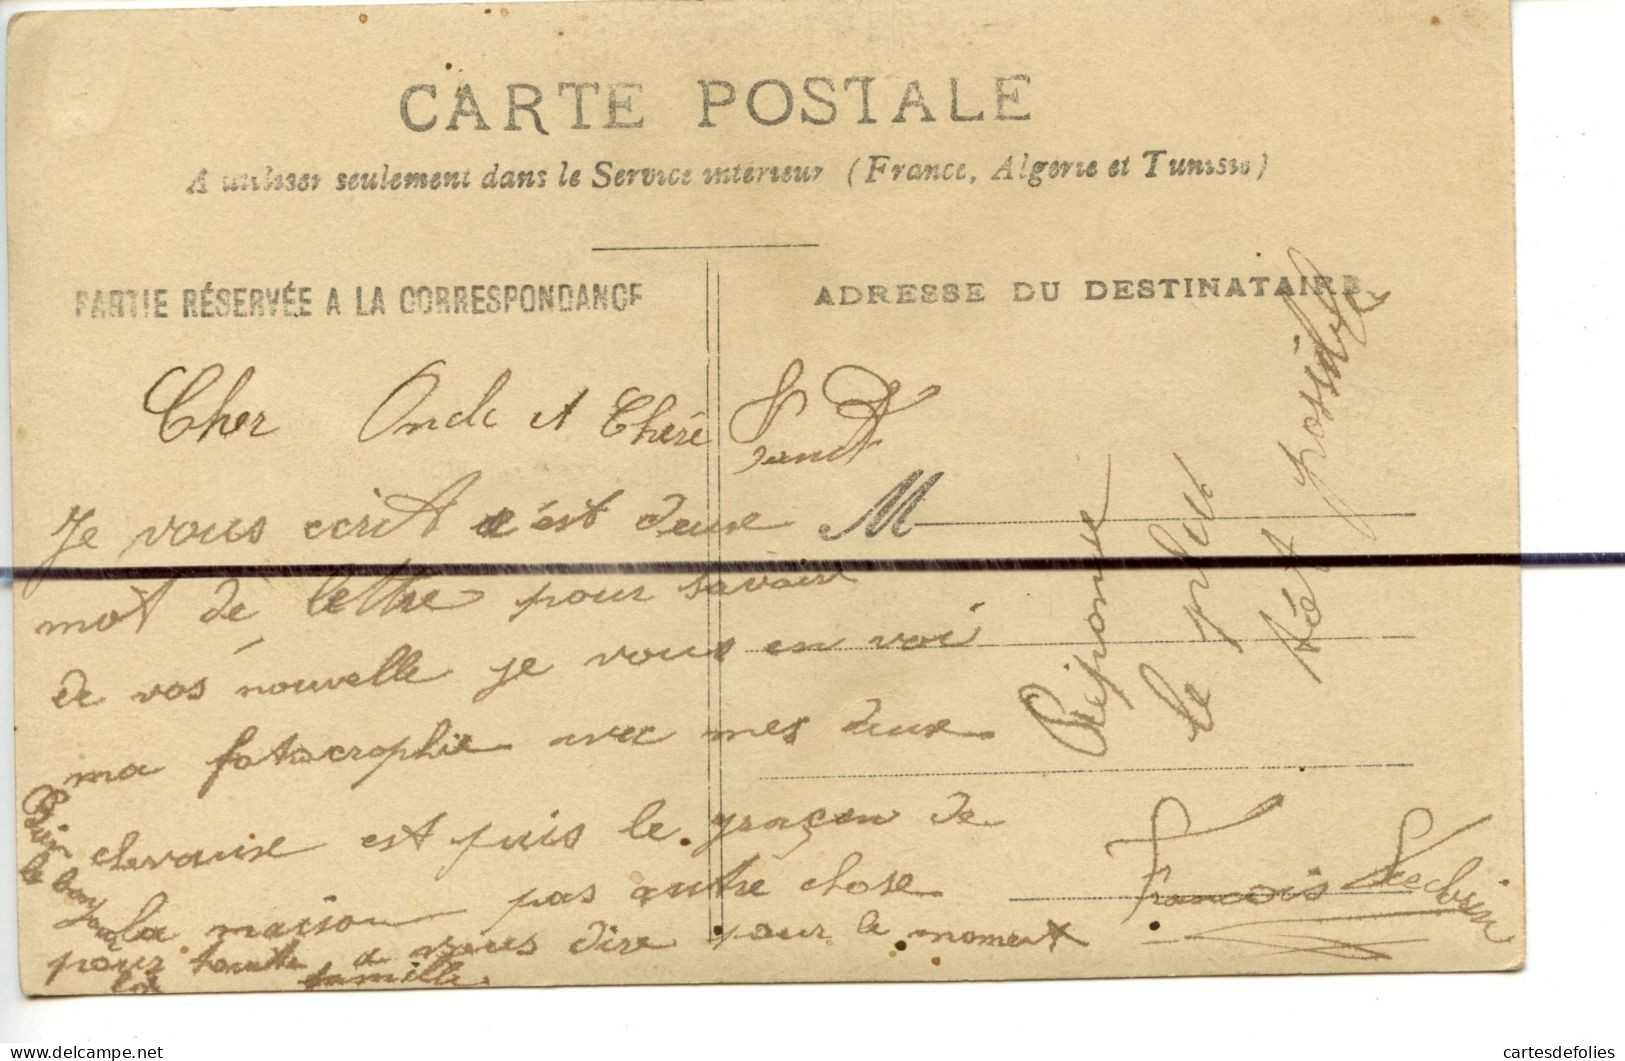 CARTE POSTALE
A utiliser seulement dans le Service intérieur (France, Algérie et Tunisie)
PARTIE RÉSERVÉE A LA CORRESPONDANCE
ADRESSE DU DESTINATAIRE
Cher Oncle et Chère
M
Je vous ecrit c'est deux
mot de lettre pour savoire
de vos nouvelle je vous en voi
ma fotocrophie avec mes deux
chevause est puis le graçon de
la maison pas autre chose
a vous dire pour le moment
Bien le bonjour
pour toute la
famille.
Réponse
le plus
tôt possible
François
cartesdefolies